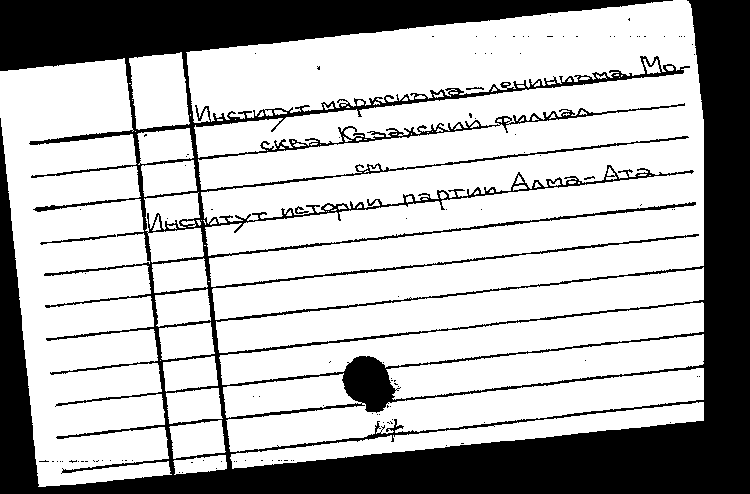 Институт марксизма-ленинизма. Мо-
сква. Казахский филиал
см.
Институт истории партии. Алма-Ата.